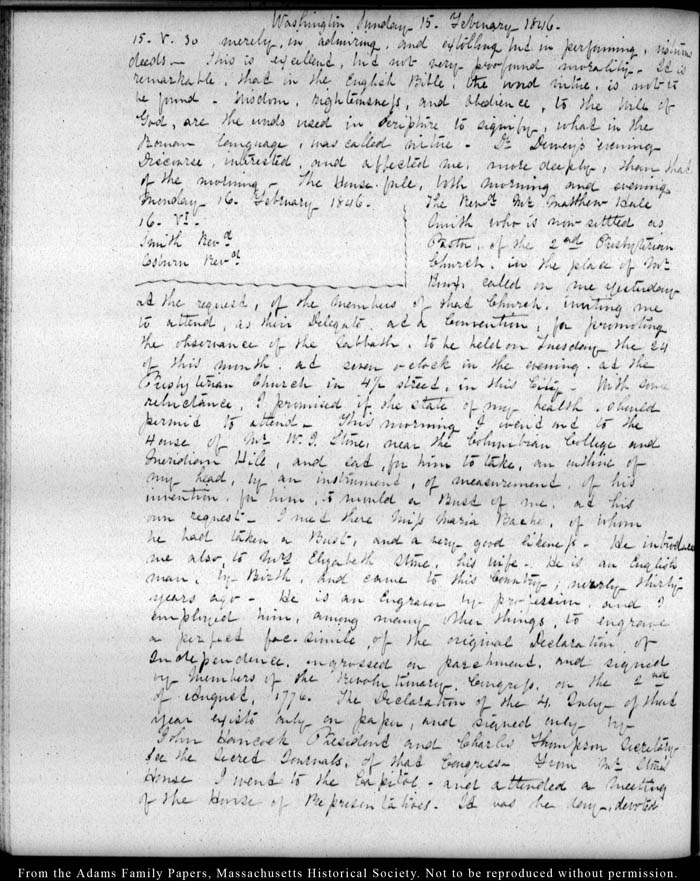 Washington Sunday 15. February 1846.
15. V. 30 merely in admiring, and extolling but in performing, virtuous
deeds – This is excellent, but not very profound morality – It is
remarkable, that in the English Bible, the word virtue, is not to
be found – Wisdom, righteousness, and obedience, to the will of
God, are the words used in Scripture to signify, what in the
Roman language, was called virtue – Dr Dewey's evening
Discourse, interested, and affected me, more deeply, than that
of the morning – The House full, both morning and evening
Monday 16. February 1846.
16. VI.
Smith Revd.
Cobum Revd.
The Revd. Mr Matthew Hale
Smith who is now settled as
Pastor, of the 2nd Presbyterian
Church, in the place of Mr
called on me yesterday
at the request, of the members of that Church, inviting me
to attend, as their Delegate at a Convention, for promoting
the observance of the Sabbath, to be held on Tuesday the 24
of this month, at seven o-clock in the evening, at the
Presbyterian Church in 4½ street, in this City – With some
reluctance, I promised if the state of my health, should
permit to attend – This morning I went out to the
House of Mr W. J. Stone, near the Columbian College and
Meridian Hill, and sat, for him to take, an outline of
my head, by an instrument, of measurement, of his
invention, for him, to mould a Bust of me, at his
own request – I met there Miss Maria Bache, of whom
he had taken a Bust, and a very good likeness – He introduced
me also, to Mrs Elizabeth Stone, his wife – He is an English
man, by Birth, and came to this Country, nearly thirty
years ago – He is an Engraver by profession, and I
employed him, among many other things, to engrave
a perfect fac-simile, of the original Declaration of
Independence, ingrossed on parchment, and signed
by members of the Revolutionary Congress, on the 2nd
of August, 1776. The Declaration of the 4. July of that
year exists only on paper, and signed only by
John Hancock President and Charles Thompson Secretary
See the Secret Journals, of that Congress – From Mr Stone's
House I went to the Capitol – and attended a meeting
of the House of Representatives. It was the day, devoted
From the Adams Family Papers, Massachusetts Historical Society. Not to be reproduced without permission.